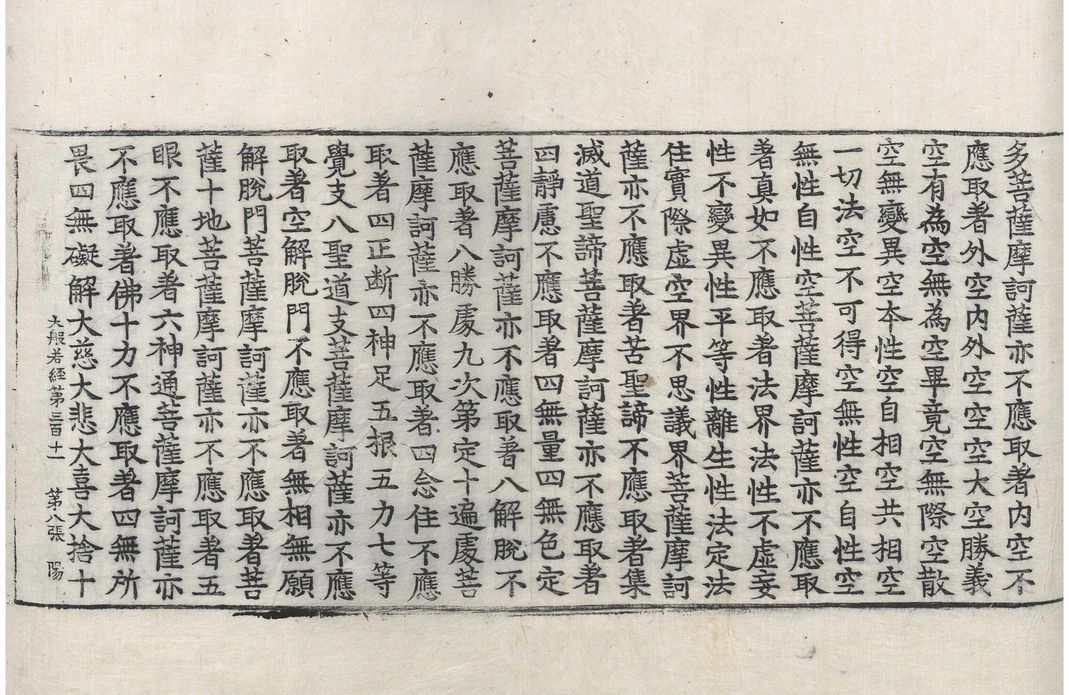 多菩薩摩訶薩亦不應取著內空不
應取著外空內外空空空大空勝義
空有為空無為空畢竟空無際空散
空無變異空本性空自相空共相空
一切法空不可得空無性空自性空
無性自性空菩薩摩訶薩亦不應取
著真如不應取著法界法性不虛妄
性不變異性平等性離生性法定法
住實際虛空界不思議界菩薩摩訶
薩亦不應取著苦聖諦不應取著集
滅道聖諦菩薩摩訶薩亦不應取著
四靜慮不應取著四無量四無色定
菩薩摩訶薩亦不應取著八解脫不
應取著八勝處九次第定十遍處菩
薩摩訶薩亦不應取著四念住不應
取著四正斷四神足五根五力七等
覺支八聖道支菩薩摩訶薩亦不應
取著空解脫門不應取著無相無願
解脫門菩薩摩訶薩亦不應取著菩
薩十地菩薩摩訶薩亦不應取著五
眼不應取著六神通菩薩摩訶薩亦
不應取著佛十力不應取著四無所
畏四無礙解大慈大悲大喜大捨十
大般若經第三百十一 第八張 陽